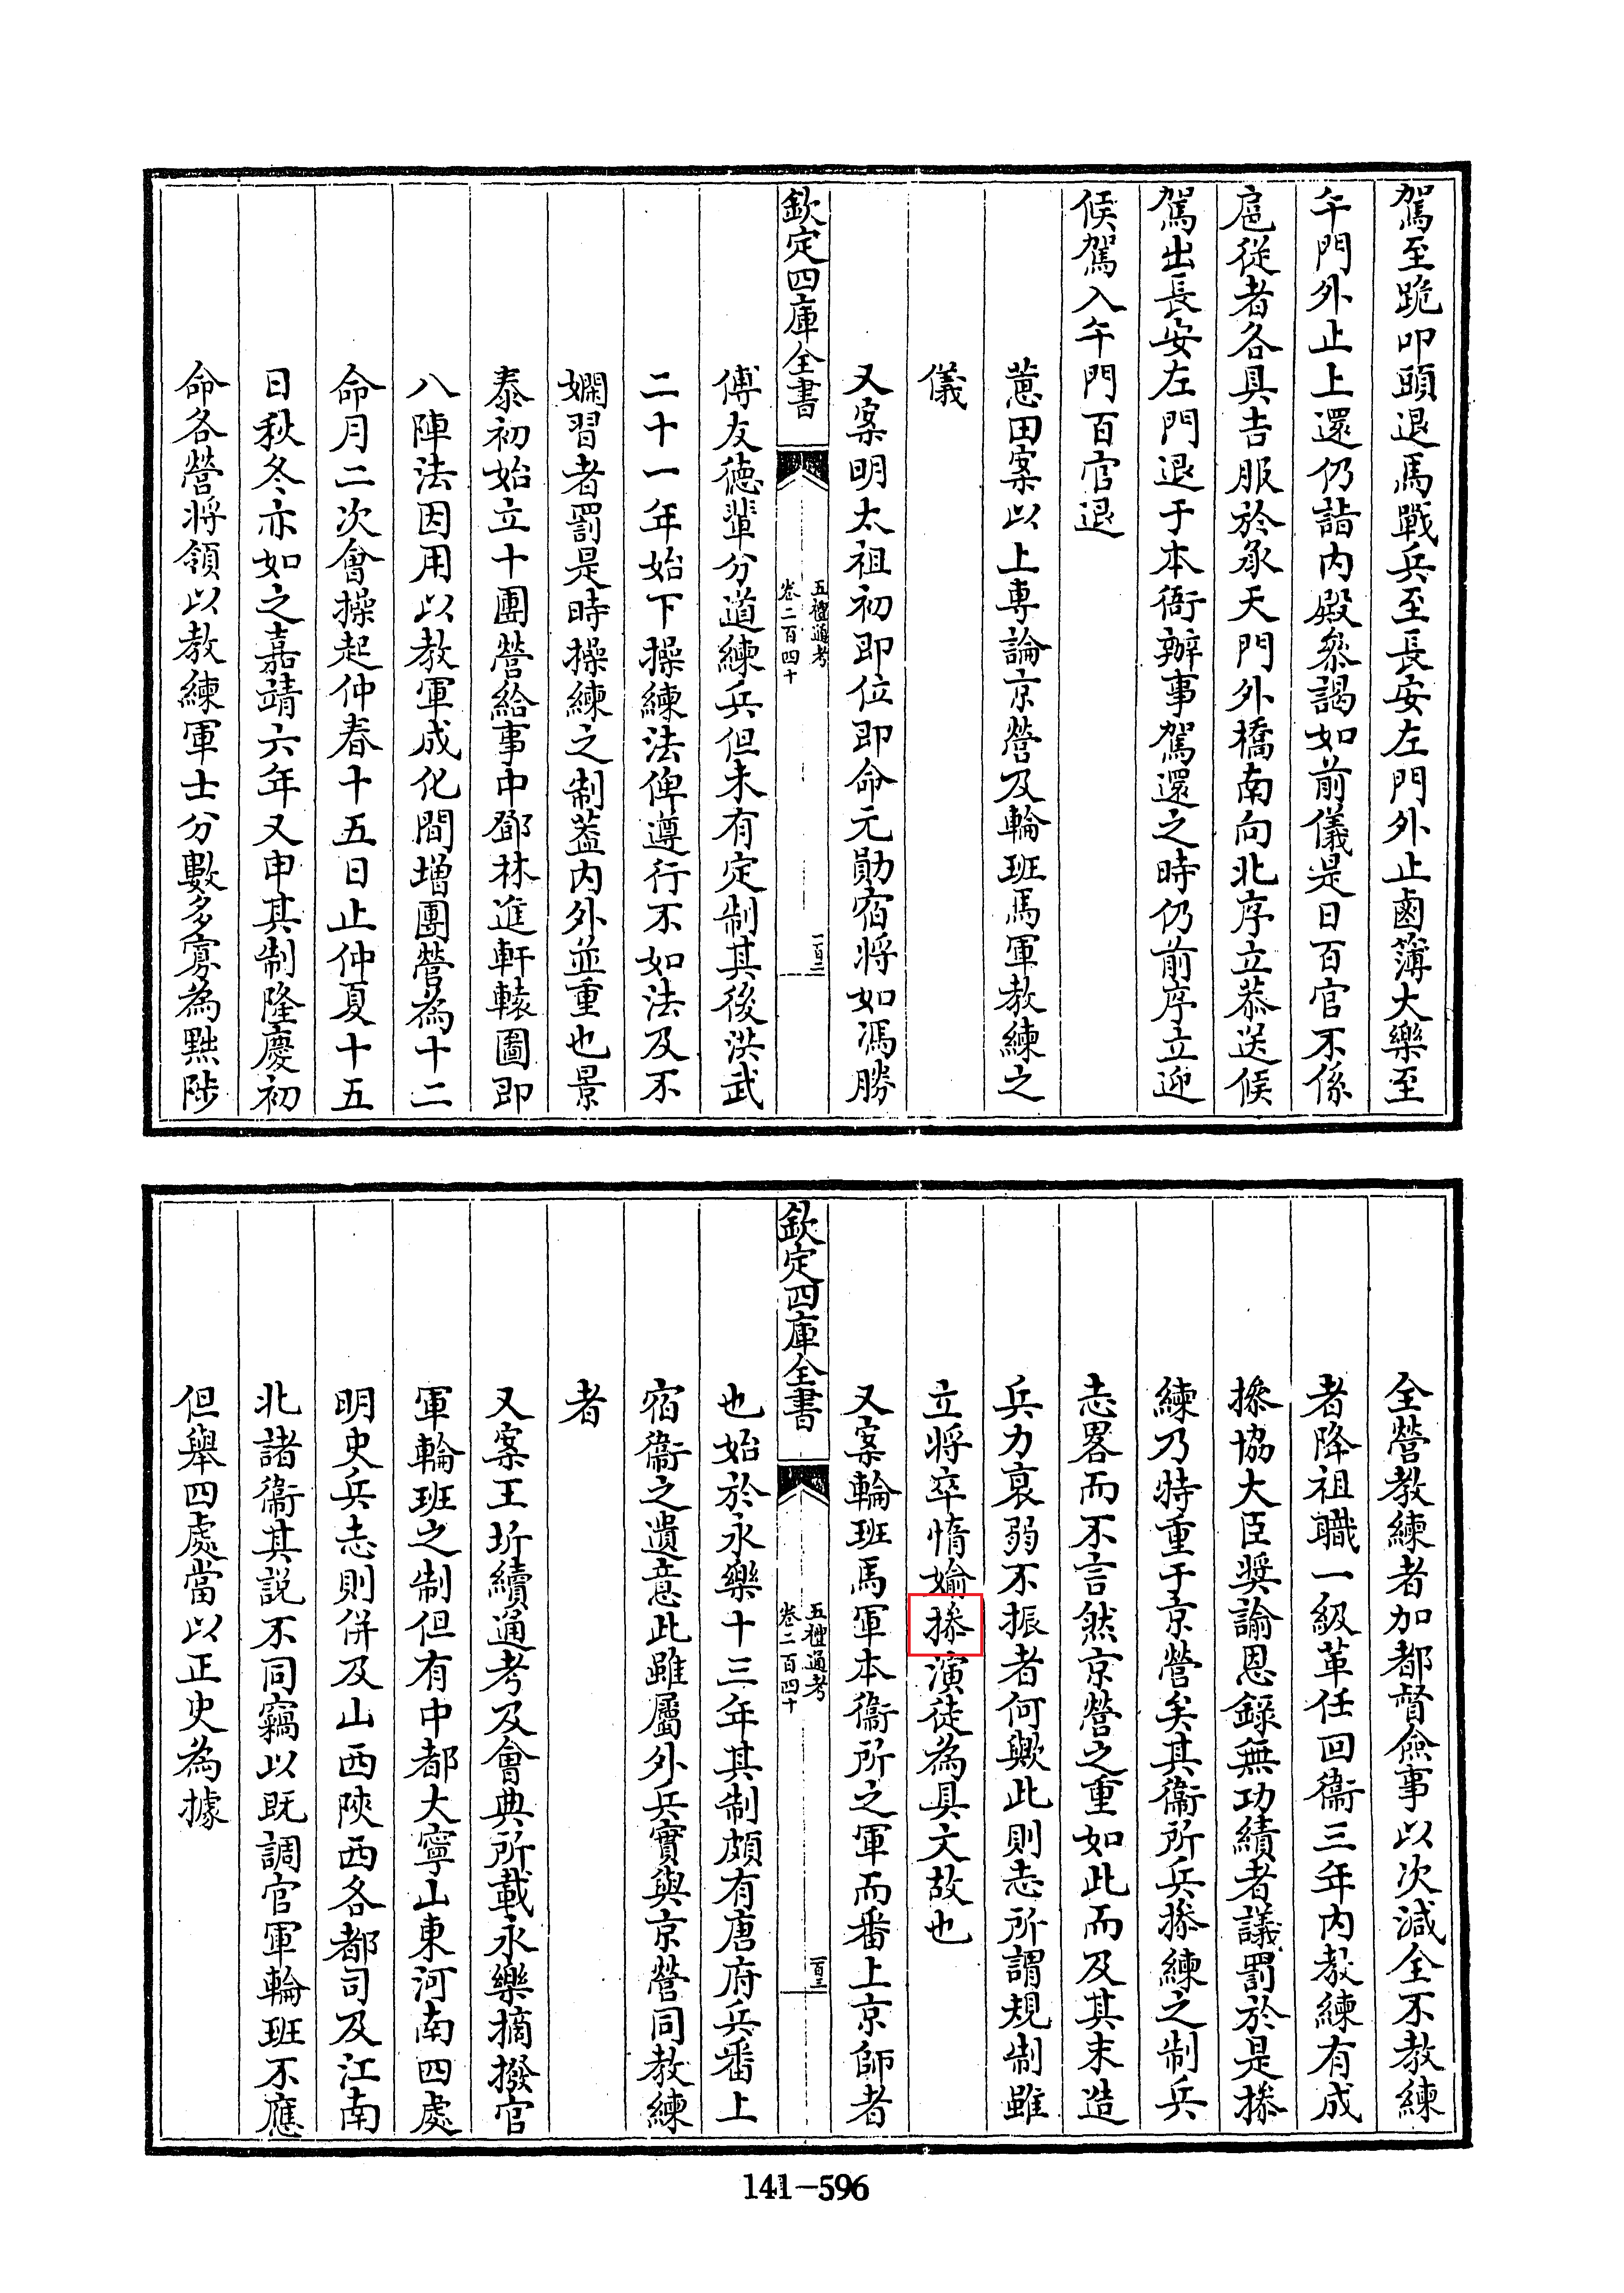 駕至跪叩頭退馬戰兵至長安左門外止鹵簿大樂至
午門外止上還仍詣内殿叅謁如前儀是日百官不係
扈從者各具吉服於承天門外橋南向北序立恭送候
駕出長安左門退于本衙辦事駕還之時仍前序立迎
候駕入午門百官退
蕙田案以上專論京營及輪班馬軍教練之
儀
又案明太祖初即位即命元勛宿將如馮勝
欽定四庫全書
五禮通考
卷二百四十
一百二
傅友德輩分道練兵但未有定制其後洪武
二十一年始下操練法俾遵行不如法及不
嫻習者罰是時操練之制蓋内外並重也景
泰初始立十團營給事中鄧林進軒轅圖即
八陣法因用以教軍成化間增團營為十二
命月二次會操起仲春十五日止仲夏十五
日秋冬亦如之嘉靖六年又申其制隆慶初
命各營將領以教練軍士分數多寡為黜陟
全營教練者加都督僉事以次減全不教練
者降祖職一級革任回衞三年内教練有成
摻協大臣奬諭恩錄無功績者議罰於是摻
練乃特重于京營矣其衞所兵摻練之制兵
志畧而不言然京營之重如此而及其末造
兵力衰弱不振者何歟此則志所謂規制雖
立將卒惰媮摻演徒為具文故也
又案輪班馬軍本衞所之軍而番上京師者
欽定四庫全書
五禮通考
卷二百四十
一百三
也始於永樂十三年其制頗有唐府兵番上
宿衞之遺意此雖屬外兵實與京營同教練
者
又案王圻續通考及會典所載永樂摘撥官
軍輪班之制但有中都大寧山東河南四處
明史兵志則併及山西陝西各都司及江南
北諸衞其説不同竊以既調官軍輪班不應
但舉四處當以正史為據
141-596